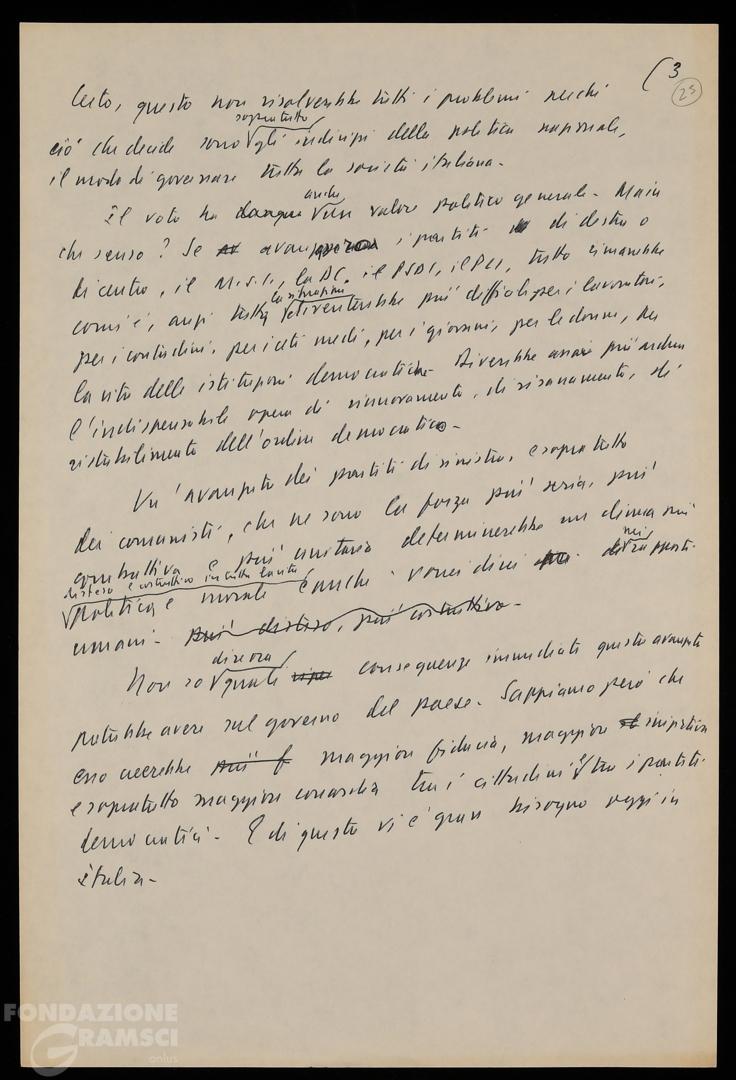 (3
25
Certo, questo non risolverebbe tutti i problemi perché
soprattutto
ciò che decide sono gli indirizzi della politica nazionale,
il modo di governare tutta la società italiana.
anche
Il voto ha dunque un valore politico generale. Ma in
che senso? Se avanzassero i partiti di destra o
di centro, il M.S.I., la DC, il PSDI, il PLI, tutto rimarrebbe
la situazione
com'è, anzi tutta diventerebbe più difficile per i lavoratori,
per i contadini, per i ceti medi, per i giovani, per le donne, per
la vita delle istituzioni democratiche. Diverrebbe assai più ardua
l'indispensabile opera di rinnovamento, di risanamento, di
ristabilimento dell'ordine democratico.
Un'avanzata dei partiti di sinistra, e sopratutto
dei comunisti, che ne sono la forza più seria, più
combattiva e più unitaria determinerebbe un clima più
disteso e costruttivo in tutta la vita
nei
politica e morale e anche vorrei dire rapporti
umani. più disteso, più costruttivo.
di ora
Non so quali conseguenze immediate questa avanzata
potrebbe avere sul governo del paese. Sappiamo però che
essa creerebbe più f maggior fiducia, maggiore simpatia
e sopratutto maggiore concordia tra i cittadini e tra i partiti
democratici. E di questo vi è gran bisogno oggi in
Italia.
FONDAZIONE
GRAMSCI
onlus